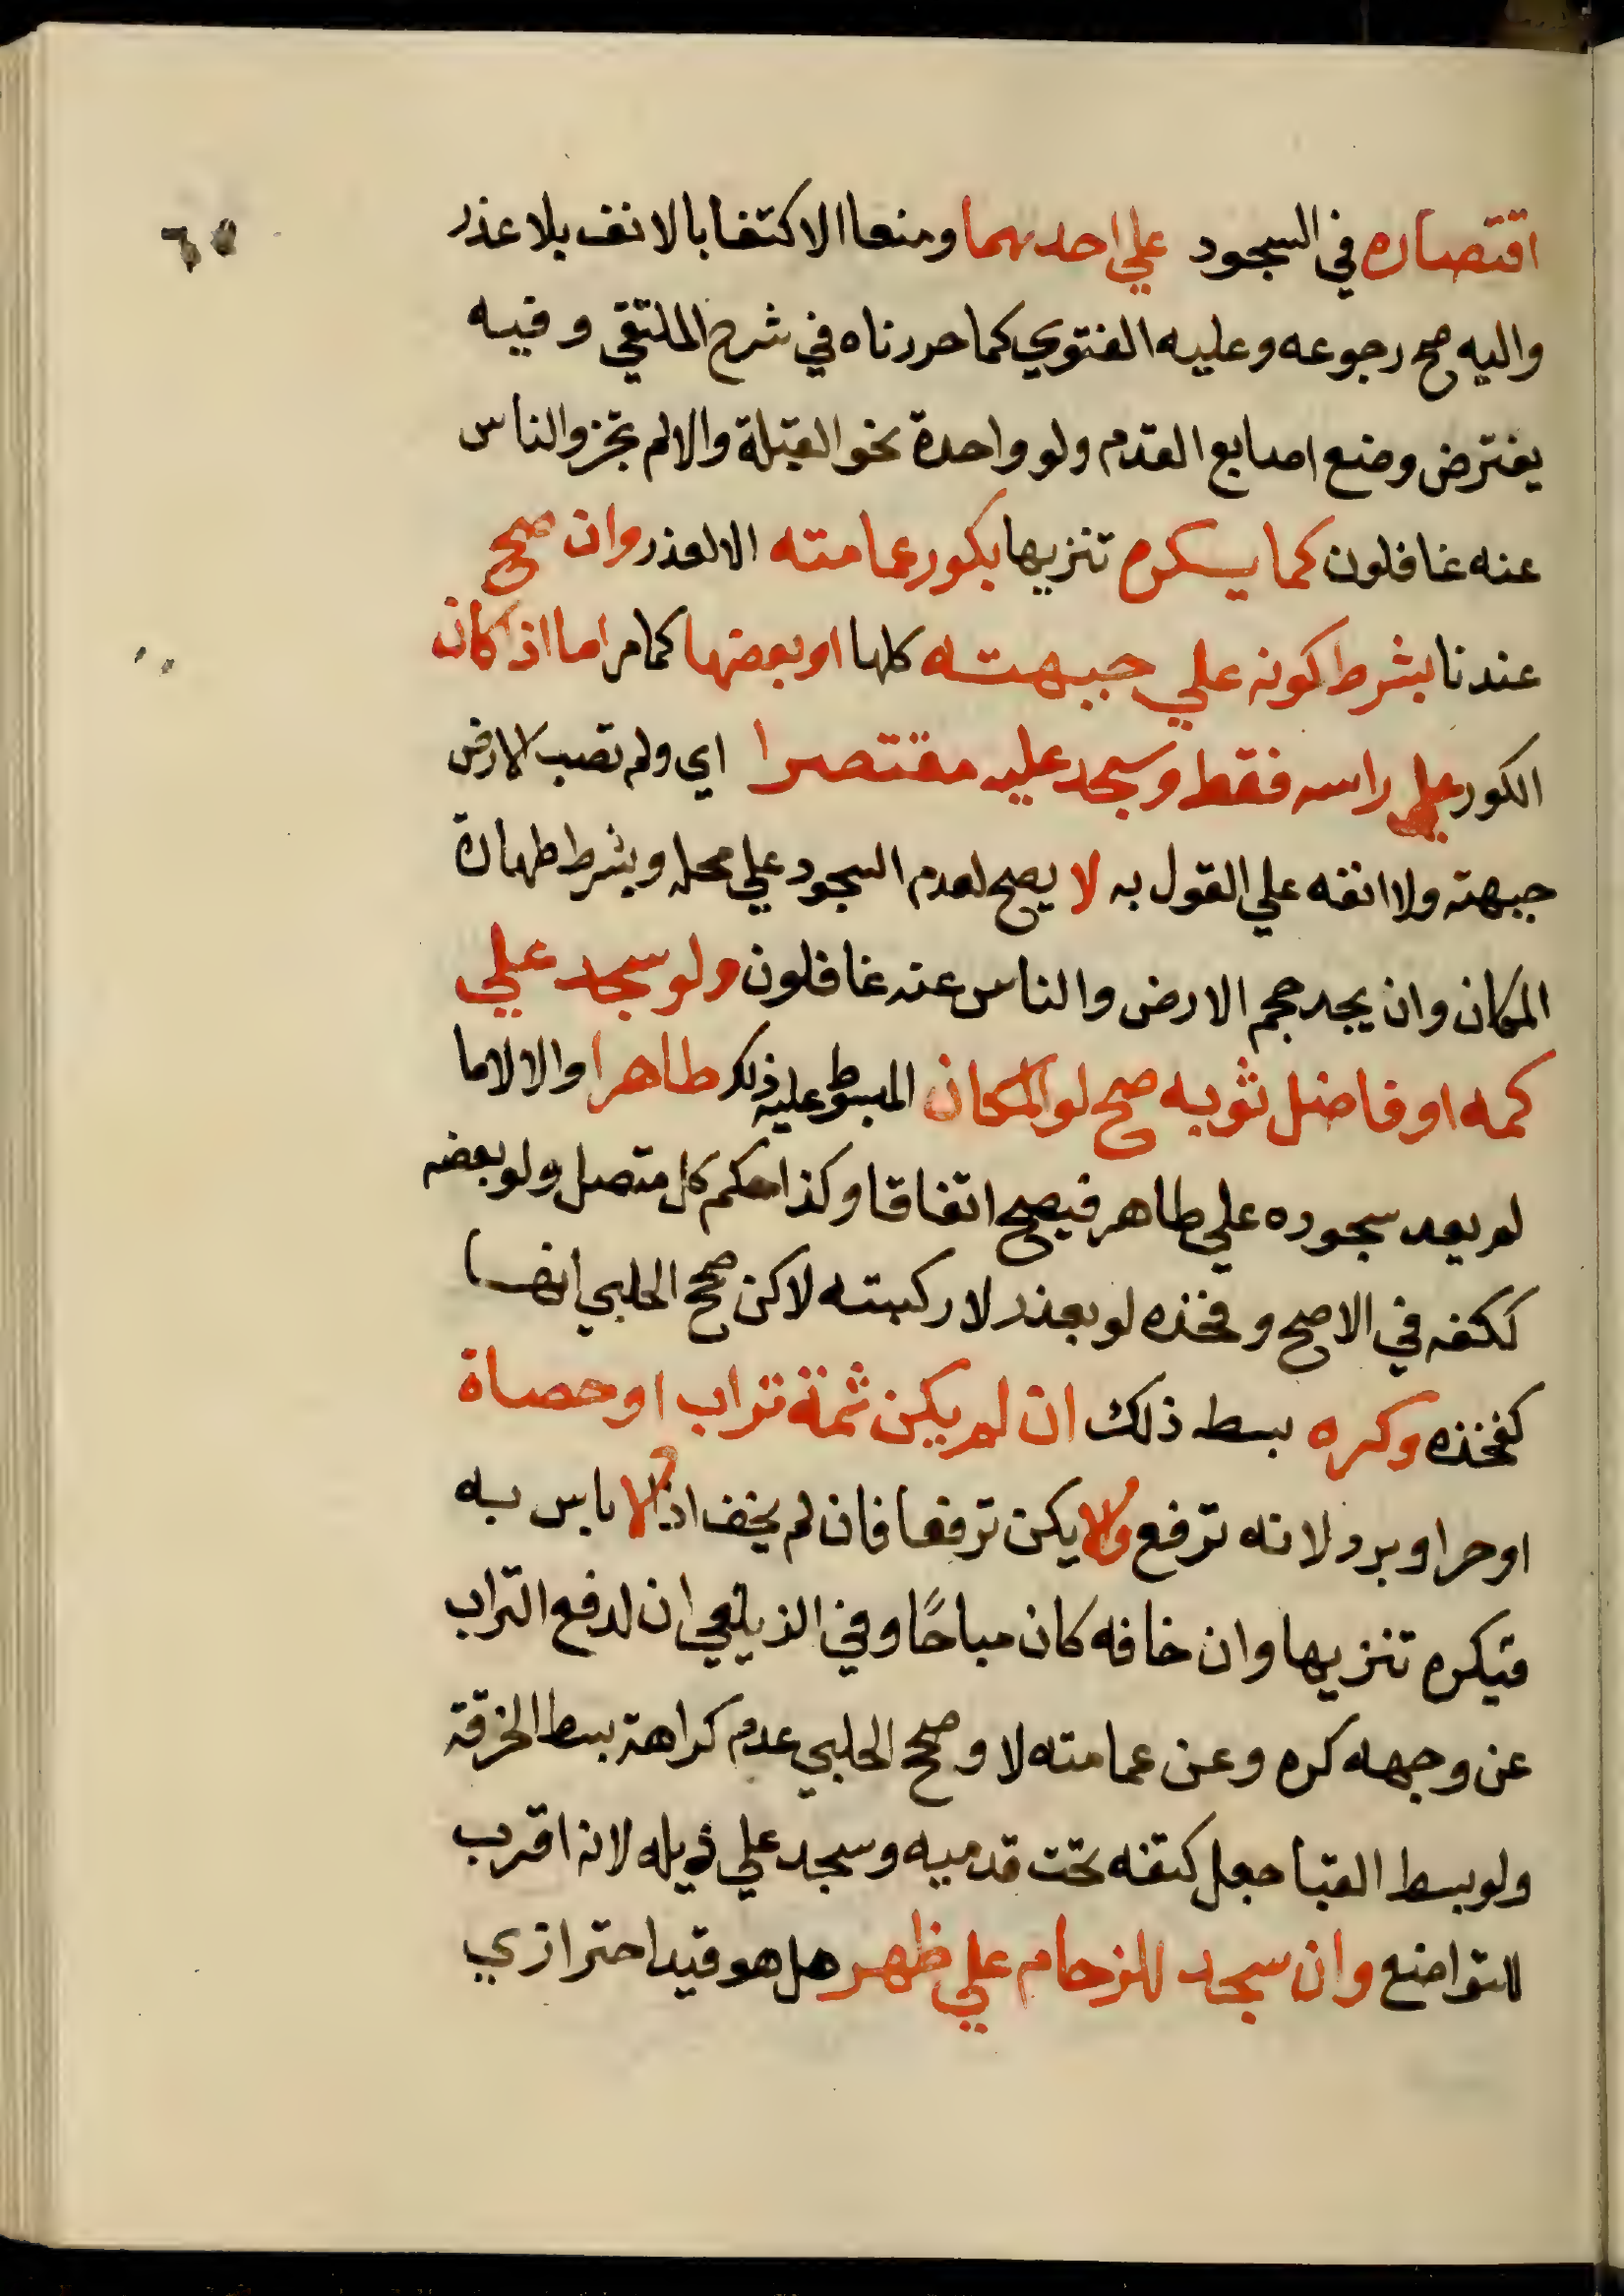 اقتصاره في السجود علي احدهما ومنعا الاكتفا بالانف بلا عذر
واليه صح رجوعه وعليه الفتوي كما حررناه في شرح الملتقي وفيه
يفترض وضع اصابع القدم ولو واحدة نحو القبلة والا لم تجز والناس
عنه غافلون كما يكره تنزيها بكور عمامته الا لعذر وان صح
عندنا بشرط كونه علي جبهته كلها او بعضها كما مر اما اذا كان
الكور علي راسه فقط وسجد عليه مقتصرا اي ولم تصب الارض
جبهته ولا انفه علي القول به لا يصح لعدم السجود علي محله وبشرط طهارة
المكان وان يجد حجم الارض والناس عنه غافلون ولو سجد علي
كمه او فاضل ثوبه صح لو المكان المبسوط عليه ذلك طاهرا والا لا ما
لم يعد سجوده علي طاهر فيصح اتفاقا وكذا حكم كل متصل ولو بعضه
ككفه في الاصح وفخذه لو بعذر لا ركبته لاكن صحح الحلبي انها
كفخذه وكره بسط ذلك ان لم يكن ثمة تراب او حصاة
او حر او برد لانه ترفع والا يكن ترفعا فان لم يخف اذا لا باس به
فيكره تنزيها وان خافه كان مباحًا وفي الزيلعي ان لدفع التراب
عن وجهه كره وعن عمامته لا وصحح الحلبي عدم كراهة بسط الخرقة
ولو بسط القبا جعل كتفه تحت قدميه وسجد علي ذيله لانه اقرب
للتواضع وان سجد للزحام علي ظهر هل هو قيد احترازي